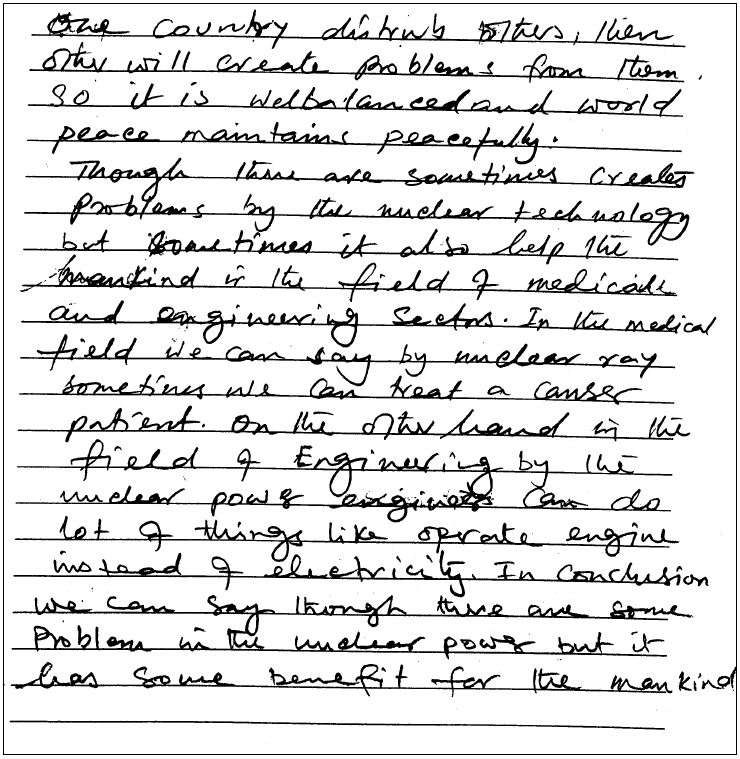 One country distrub others, then
other will create problems from them.
So it is welbalanced and world
peace maintains peacefully.
Though there are sometimes creates
problems by the nuclear technology
but sometimes it also help the
mankind in the field of medicale
and engineering sectors. In the medical
field we can say by nuclear ray
sometimes we can treat a canser
patient. On the other hand in the
field of Engineering by the
nuclear power engines can do
lot of things like operate engine
instead of electricity. In conclusion
we can say though there are some
problem in the nuclear power but it
has some benefit for the mankind